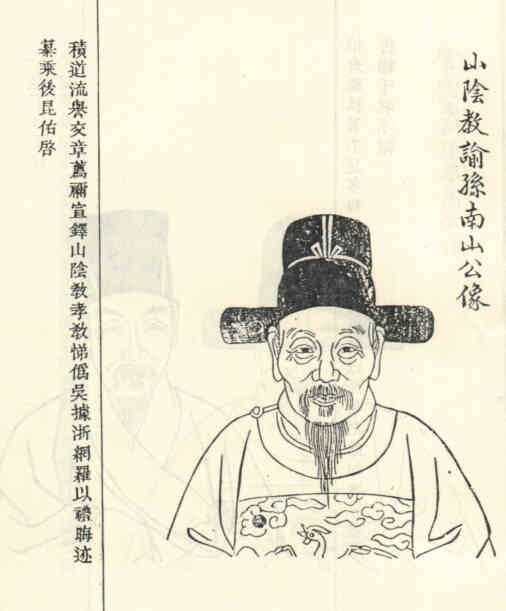 山陰教諭孫南山公像
積道流譽文章薦禰宣鐸山陰敎孝敎悌僞吳據浙網羅以禮晦迹
纂乘後昆佑啓